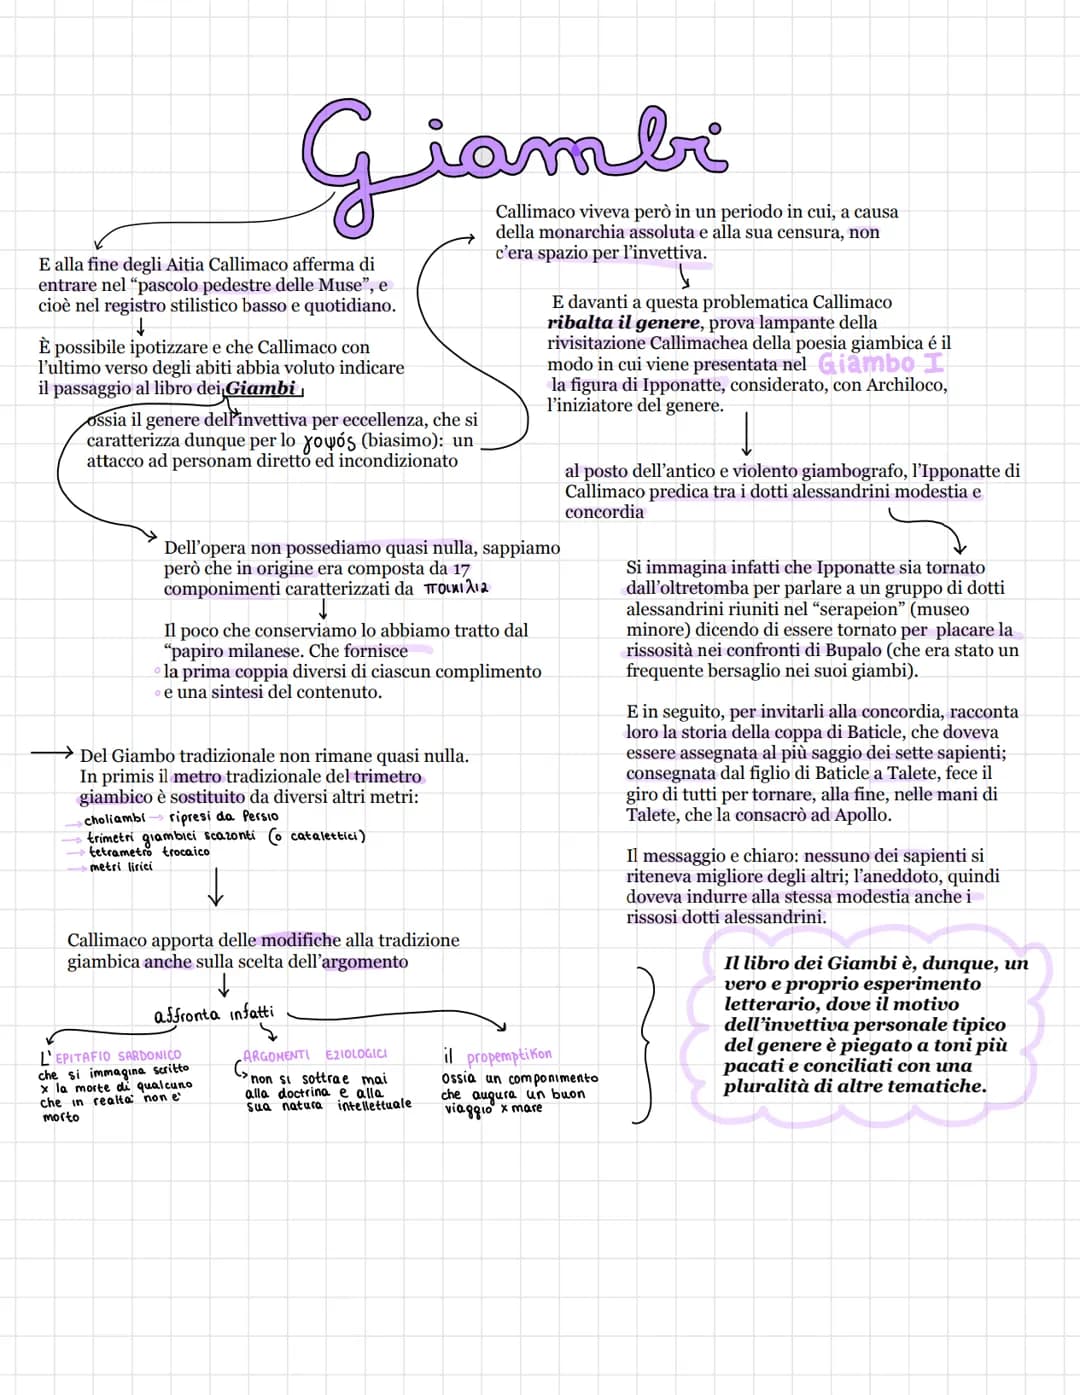 Giambi
E alla fine degli Aitia Callimaco afferma di
entrare nel “pascolo pedestre delle Muse”, e
cioè nel registro stilistico basso e quotidiano.
È possibile ipotizzare e che Callimaco con
l’ultimo verso degli abiti abbia voluto indicare
il passaggio al libro dei Giambi
ossia il genere dell’invettiva per eccellenza, che si
caratterizza dunque per lo γοψός (biasimo): un
attacco ad personam diretto ed incondizionato
Callimaco viveva però in un periodo in cui, a causa
della monarchia assoluta e alla sua censura, non
c’era spazio per l’invettiva.
E davanti a questa problematica Callimaco
ribalta il genere, prova lampante della
rivisitazione Callimachea della poesia giambica é il
modo in cui viene presentata nel Giambo I
la figura di Ipponatte, considerato, con Archiloco,
l’iniziatore del genere.
al posto dell’antico e violento giambografo, l’Ipponatte di
Callimaco predica tra i dotti alessandrini modestia e
concordia
Si immagina infatti che Ipponatte sia tornato
dall’oltretomba per parlare a un gruppo di dotti
alessandrini riuniti nel “serapeion” (museo
minore) dicendo di essere tornato per placare la
rissosità nei confronti di Bupalo (che era stato un
frequente bersaglio nei suoi giambi).
E in seguito, per invitarli alla concordia, racconta
loro la storia della coppa di Baticle, che doveva
essere assegnata al più saggio dei sette sapienti;
consegnata dal figlio di Baticle a Talete, fece il
giro di tutti per tornare, alla fine, nelle mani di
Talete, che la consacrò ad Apollo.
Il messaggio e chiaro: nessuno dei sapienti si
riteneva migliore degli altri; l’aneddoto, quindi
doveva indurre alla stessa modestia anche i
rissosi dotti alessandrini.
Dell’opera non possediamo quasi nulla, sappiamo
però che in origine era composta da 17
componimenti caratterizzati da ποικιλια
Il poco che conserviamo lo abbiamo tratto dal
“papiro milanese. Che fornisce
la prima coppia diversi di ciascun complimento
e una sintesi del contenuto.
Del Giambo tradizionale non rimane quasi nulla.
In primis il metro tradizionale del trimetro
giambico è sostituito da diversi altri metri:
choliambi → ripresi da Persio
→ trimetri giambici scazonti (o catalettici)
→ tetrametro trocaico
→ metri lirici
Callimaco apporta delle modifiche alla tradizione
giambica anche sulla scelta dell’argomento
affronta infatti
L' EPITAFIO SARDONICO
che si immagina scritto
x la morte di qualcuno
che in realta' non e'
morto
ARGOMENTI EZIOLOGICI
non si sottrae mai
alla doctrina e alla
sua natura intellettuale
il propemptikon
ossia un componimento
che augura un buon
viaggio x mare
Il libro dei Giambi è, dunque, un
vero e proprio esperimento
letterario, dove il motivo
dell’invettiva personale tipico
del genere è piegato a toni più
pacati e conciliati con una
pluralità di altre tematiche.